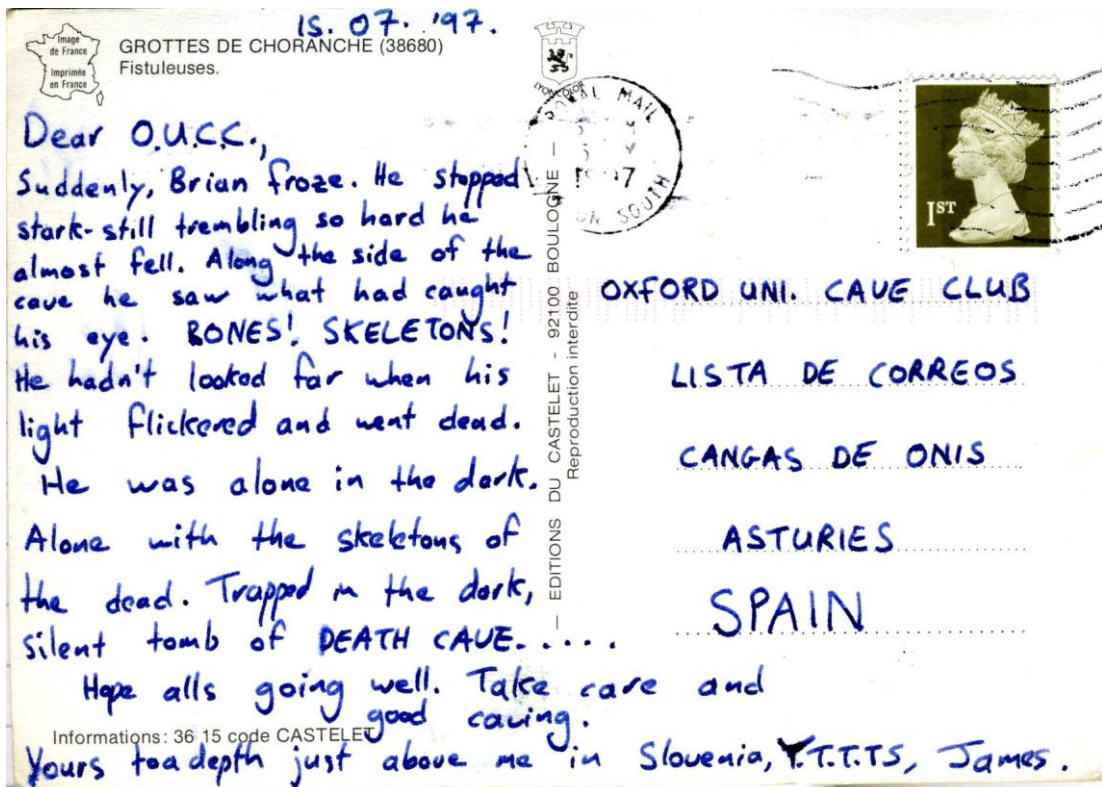 15. 07. '97.
Image
de France
Imprimée
en France
GROTTES DE CHORANCHE (38680)
Fistuleuses.
LYONCOLOR
ROYAL MAIL
SOUTH
1ST
Dear O.U.C.C.,
Suddenly, Brian froze. He stopped
stark-still trembling so hard he
almost fell. Along the side of the
cave he saw what had caught
his eye. BONES! SKELETONS!
He hadn't looked far when his
light flickered and went dead.
He was alone in the dark.
Alone with the skeletons of
the dead. Trapped in the dark,
silent tomb of DEATH CAVE.....
Hope alls going well. Take care and
good caving.
Informations: 36 15 code CASTELET
Yours toadepth just above me in Slovenia, Y.T.T.TS, James.
— EDITIONS DU CASTELET - 92100 BOULOGNE —
Reproduction interdite
OXFORD UNI. CAVE CLUB
LISTA DE CORREOS
CANGAS DE ONIS
ASTURIES
SPAIN